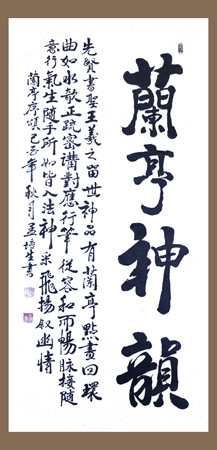 蘭亭神韻
先賢書聖王羲之留世神品有蘭亭點畫回環
曲如水欹正疏密講對應行筆從容和而暢脉接随
意行氣生随手所如皆入法神采飛揚叙幽情
蘭亭序頌己丑年秋月孟培生書